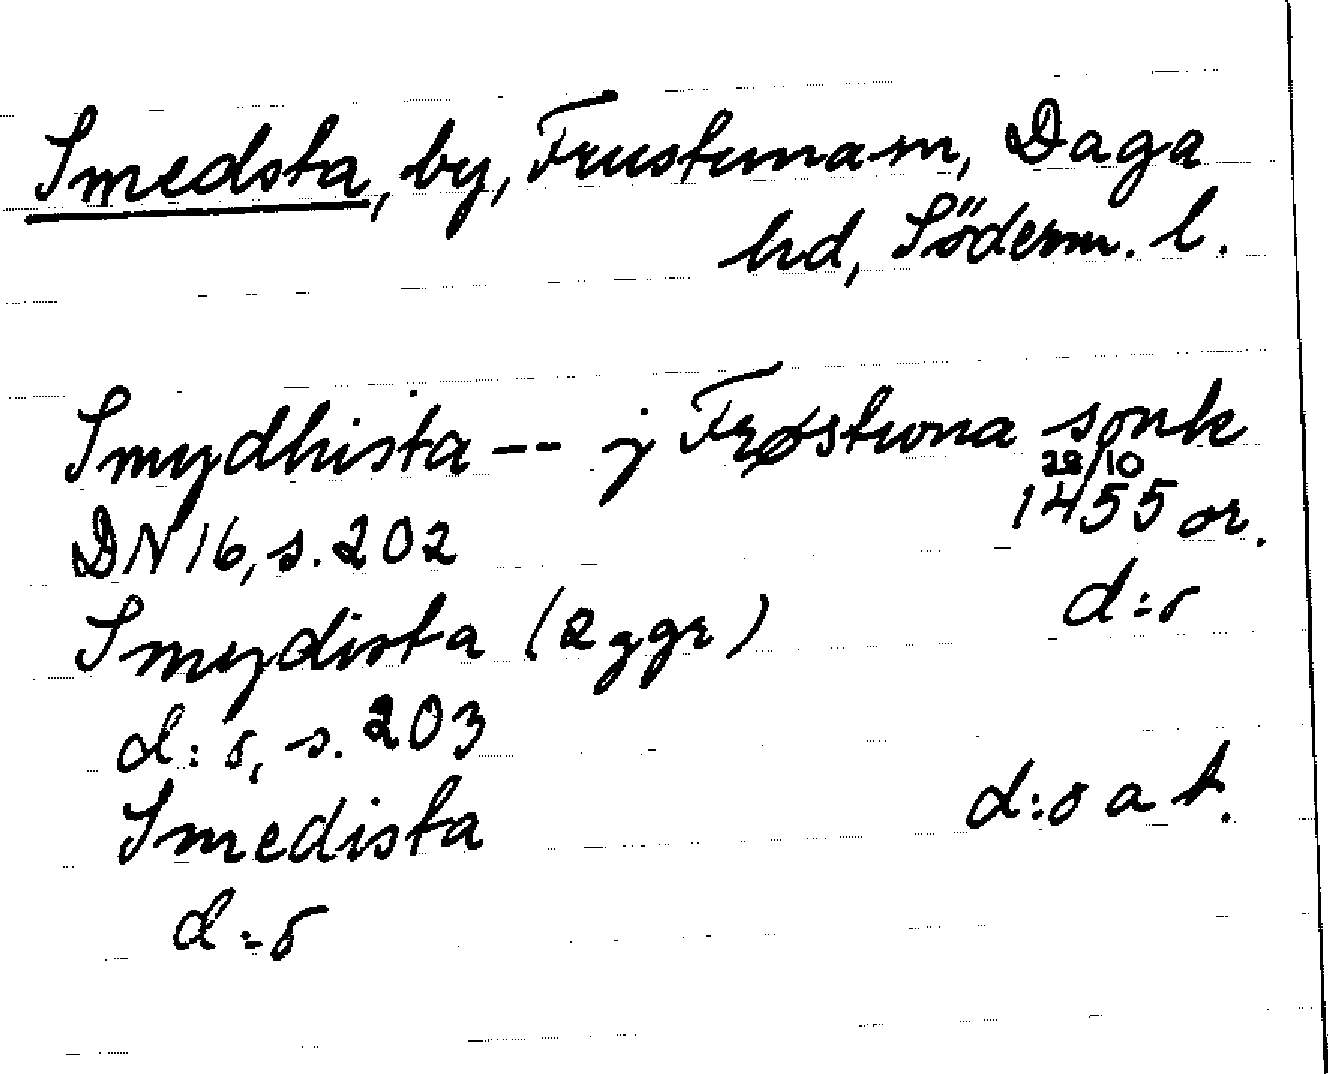 Smedsta, by, Frustuna sn, Daga
hd, Söderm. l.
Smydhista -- j Frøstwna sonk
28/10
DN 16, s. 202 1455 or.
Smydista (2 ggr) d:o
d:o, s. 203
Smedista d:o a t.
d:o